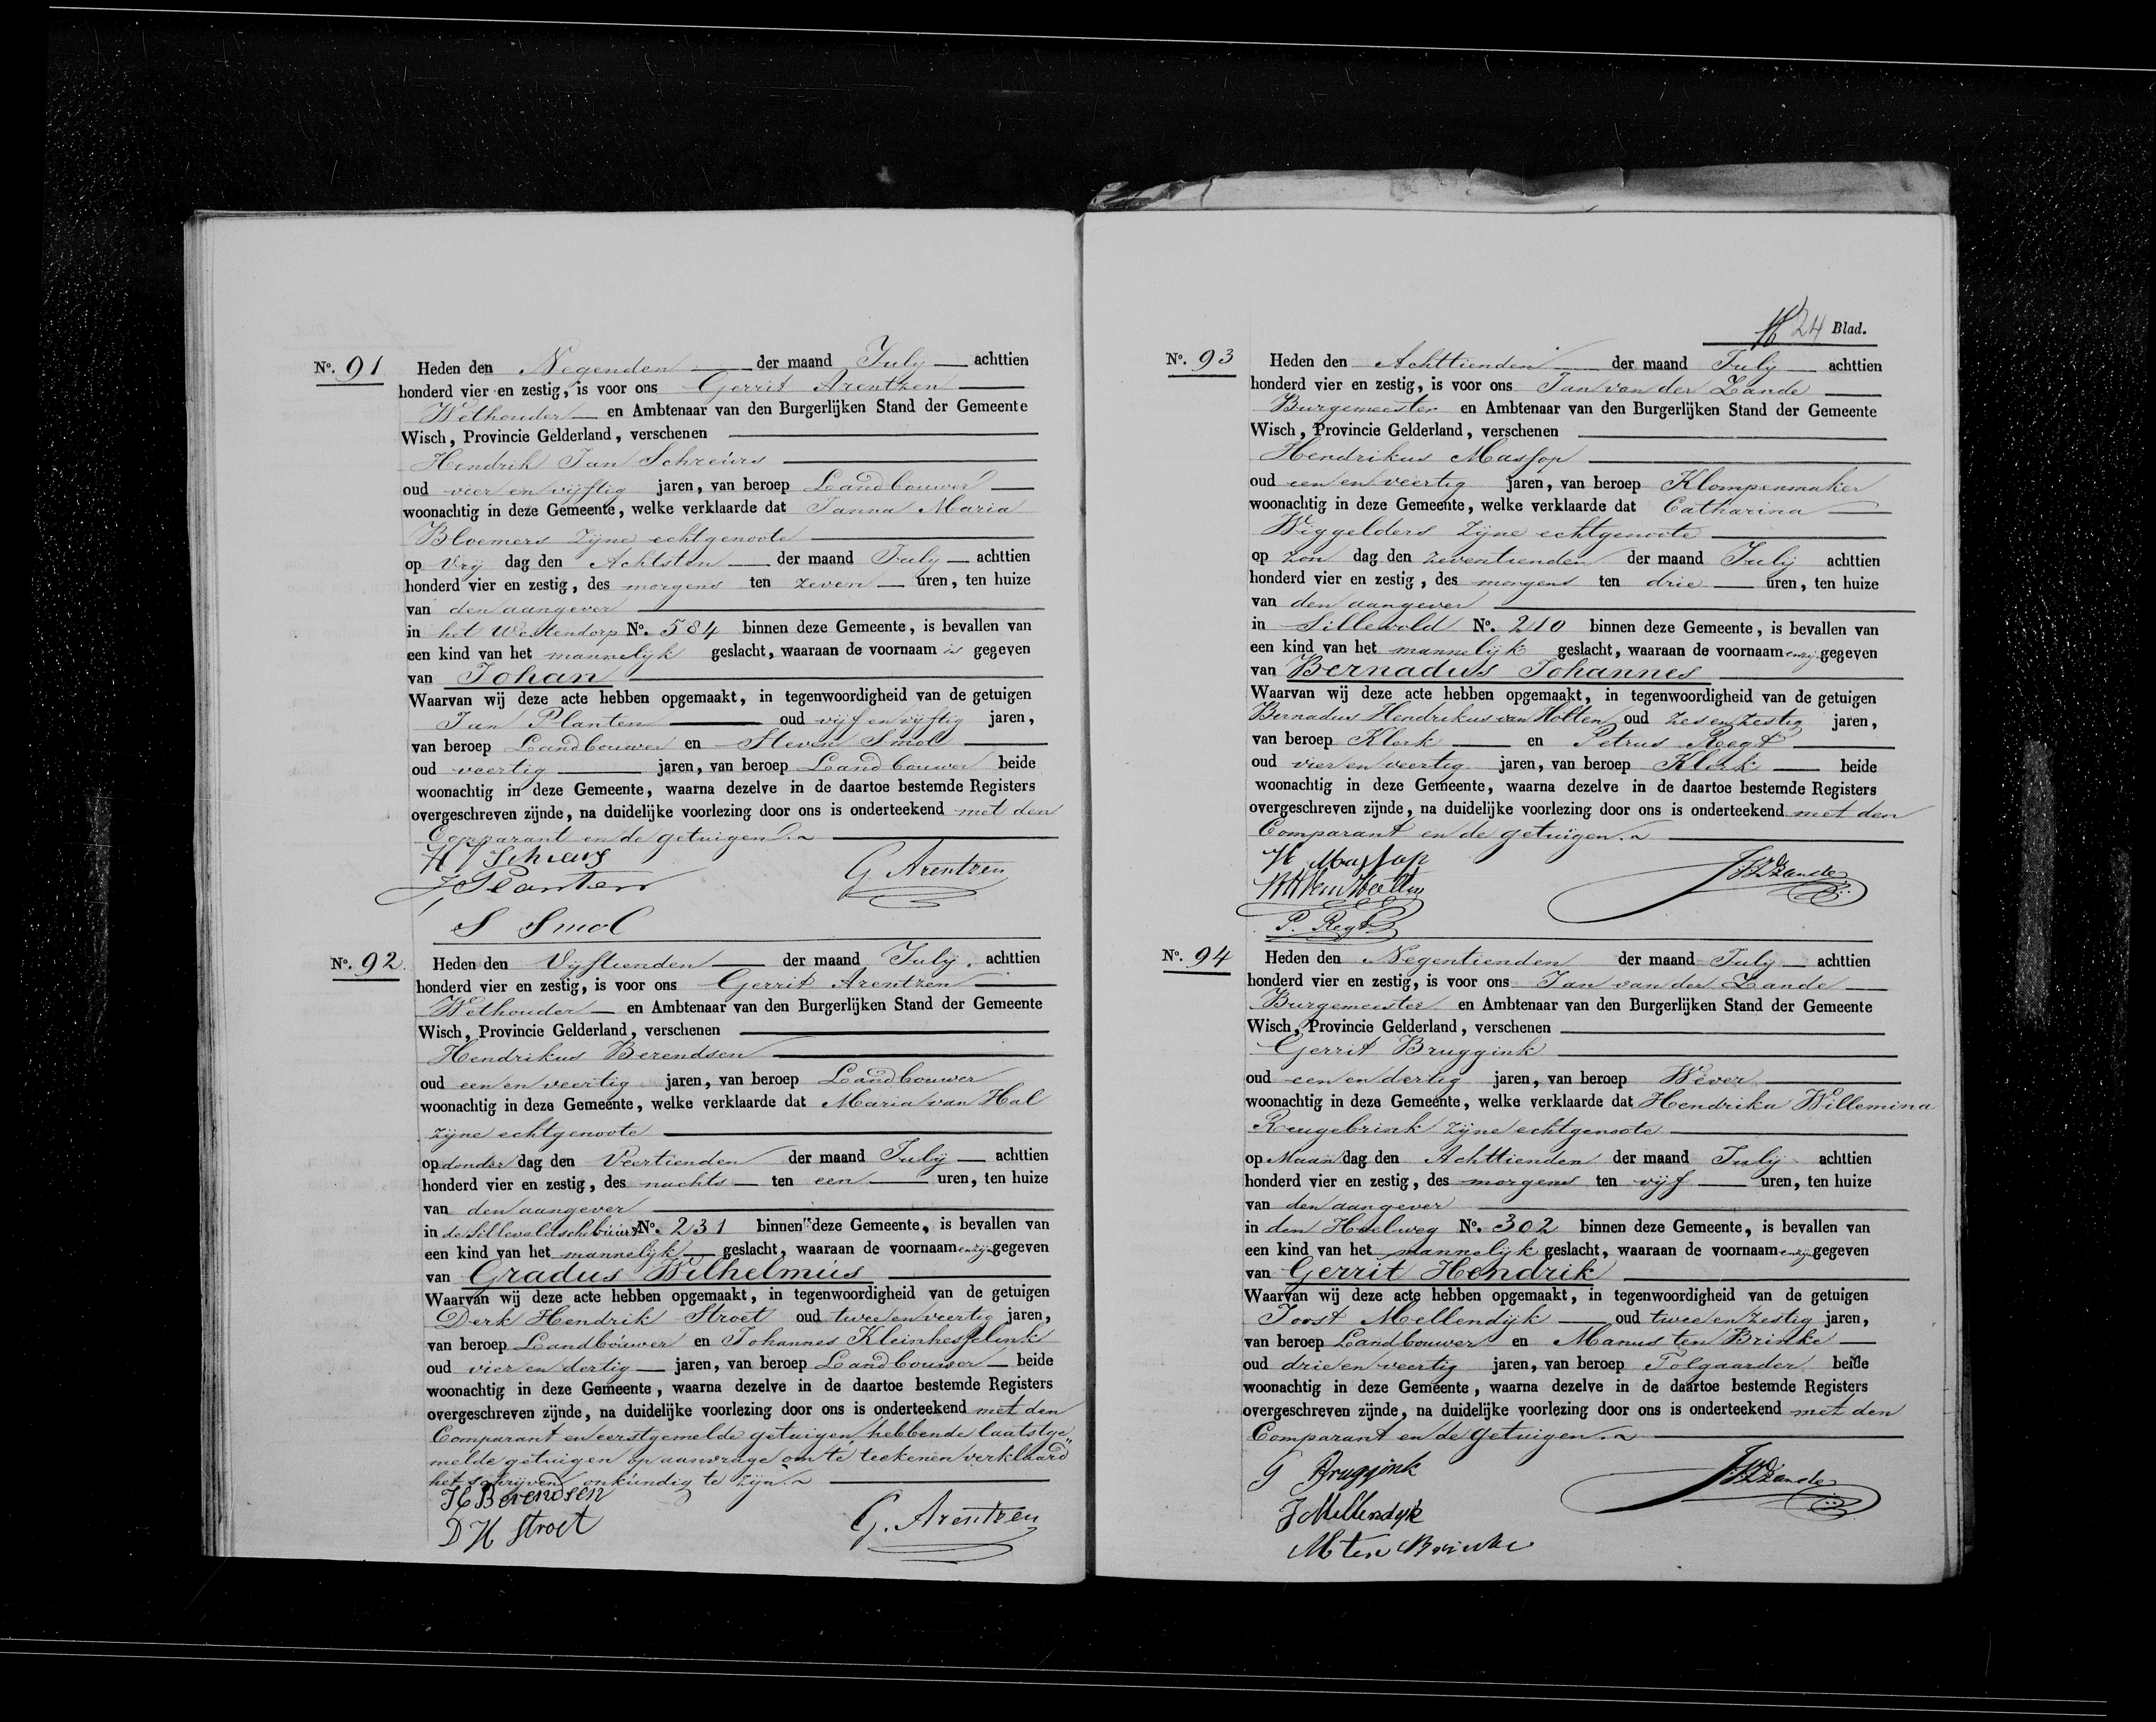 No. 91 Heden den Negenden der maand July achttien
honderd vier en zestig, is voor ons Gerrit Arentzen
Wethouder en Ambtenaar van den Burgerlijken Stand der Gemeente
Wisch, Provincie Gelderland, verschenen
Hendrik Jan Schreurs
oud vier en vijftig jaren, van beroep Landbouwer
woonachtig in deze Gemeente, welke verklaarde dat Janna Maria
Bloemers zijne echtgenoote
op Vrij dag den Achtsten der maand July achttien
honderd vier en zestig, des morgens ten zeven uren, ten huize
van den aangever
in het Westendorp No. 584 binnen deze Gemeente, is bevallen van
een kind van het mannelijk geslacht, waaraan de voornaam is gegeven
van Johan
Waarvan wij deze acte hebben opgemaakt, in tegenwoordigheid van de getuigen
Jan Planten oud vijf en vijftig jaren,
van beroep Landbouwer en Steven Smol
oud veertig jaren, van beroep Landbouwer beide
woonachtig in deze Gemeente, waarna dezelve in de daartoe bestemde Registers
overgeschreven zijnde, na duidelijke voorlezing door ons is onderteekend met den
Comparant en de getuigen.
H J Schreurs
J Planten G Arentzen
S Smol
No. 92. Heden den Vijftienden der maand July achttien
honderd vier en zestig, is voor ons Gerrit Arentzen
Wethouder en Ambtenaar van den Burgerlijken Stand der Gemeente
Wisch, Provincie Gelderland, verschenen
Hendrikus Berendsen
oud een en veertig jaren, van beroep Landbouwer
woonachtig in deze Gemeente, welke verklaarde dat Maria van Hal
zijne echtgenoote
op donder dag den Veertienden der maand July achttien
honderd vier en zestig, des nachts ten een uren, ten huize
van den aangever
in de Sillevoldschebuurt No. 231 binnen deze Gemeente, is bevallen van
een kind van het mannelijk geslacht, waaraan de voornaam en zijn gegeven
van Gradus Wilhelmus
Waarvan wij deze acte hebben opgemaakt, in tegenwoordigheid van de getuigen
Derk Hendrik Stroet oud twee en veertig jaren,
van beroep Landbouwer en Johannes Kleinhesselink
oud vier en dertig jaren, van beroep Landbouwer beide
woonachtig in deze Gemeente, waarna dezelve in de daartoe bestemde Registers
overgeschreven zijnde, na duidelijke voorlezing door ons is onderteekend met den
Comparant en eerstgemelde getuigen, hebbende laatstge„
melde getuigen op aanvrage om te teekenen verklaard
het schrijven onkundig te zijn
H Berendsen
D H Stroet G. Arentzen
24 Blad.
No. 93 Heden den Achttienden der maand July achttien
honderd vier en zestig, is voor ons Jan van der Zande
Burgemeester en Ambtenaar van den Burgerlijken Stand der Gemeente
Wisch, Provincie Gelderland, verschenen
Hendrikus Massop
oud een en veertig jaren, van beroep Klompenmaker
woonachtig in deze Gemeente, welke verklaarde dat Catharina
Wiggelders zijne echtgenoote
op zon dag den zeventienden der maand July achttien
honderd vier en zestig, des morgens ten drie uren, ten huize
van den aangever
in Sillevold No. 210 binnen deze Gemeente, is bevallen van
een kind van het mannelijk geslacht, waaraan de voornaam en zijn gegeven
van Bernadus Johannes
Waarvan wij deze acte hebben opgemaakt, in tegenwoordigheid van de getuigen
Bernadus Hendrikus van Holten oud zes en zestig jaren,
van beroep Klerk en Petrus Reegt
oud vier en veertig jaren, van beroep Klerk beide
woonachtig in deze Gemeente, waarna dezelve in de daartoe bestemde Registers
overgeschreven zijnde, na duidelijke voorlezing door ons is onderteekend met den
Comparant en de getuigen.
H Massop
JvdZande
P. Regt
No. 94 Heden den Negentienden der maand July achttien
honderd vier en zestig, is voor ons Jan van der Zande
Burgemeester en Ambtenaar van den Burgerlijken Stand der Gemeente
Wisch, Provincie Gelderland, verschenen
Gerrit Bruggink
oud een en dertig jaren, van beroep Wever
woonachtig in deze Gemeente, welke verklaarde dat Hendrika Willemina
Reugebrink zijne echtgenoote
op Maan dag den Achttienden der maand July achttien
honderd vier en zestig, des morgens ten vijf uren, ten huize
van den aangever
in den Heelweg No. 302 binnen deze Gemeente, is bevallen van
een kind van het mannelijk geslacht, waaraan de voornaam en zijn gegeven
van Gerrit Hendrik
Waarvan wij deze acte hebben opgemaakt, in tegenwoordigheid van de getuigen
Joost Mellendijk oud twee en zestig jaren,
van beroep Landbouwer en Manus ten Brinke
oud drie en veertig jaren, van beroep Tolgaarder beide
woonachtig in deze Gemeente, waarna dezelve in de daartoe bestemde Registers
overgeschreven zijnde, na duidelijke voorlezing door ons is onderteekend met den
Comparant en de getuigen.
G Bruggink JvdZande
J Mellendijk
M ten Brinke